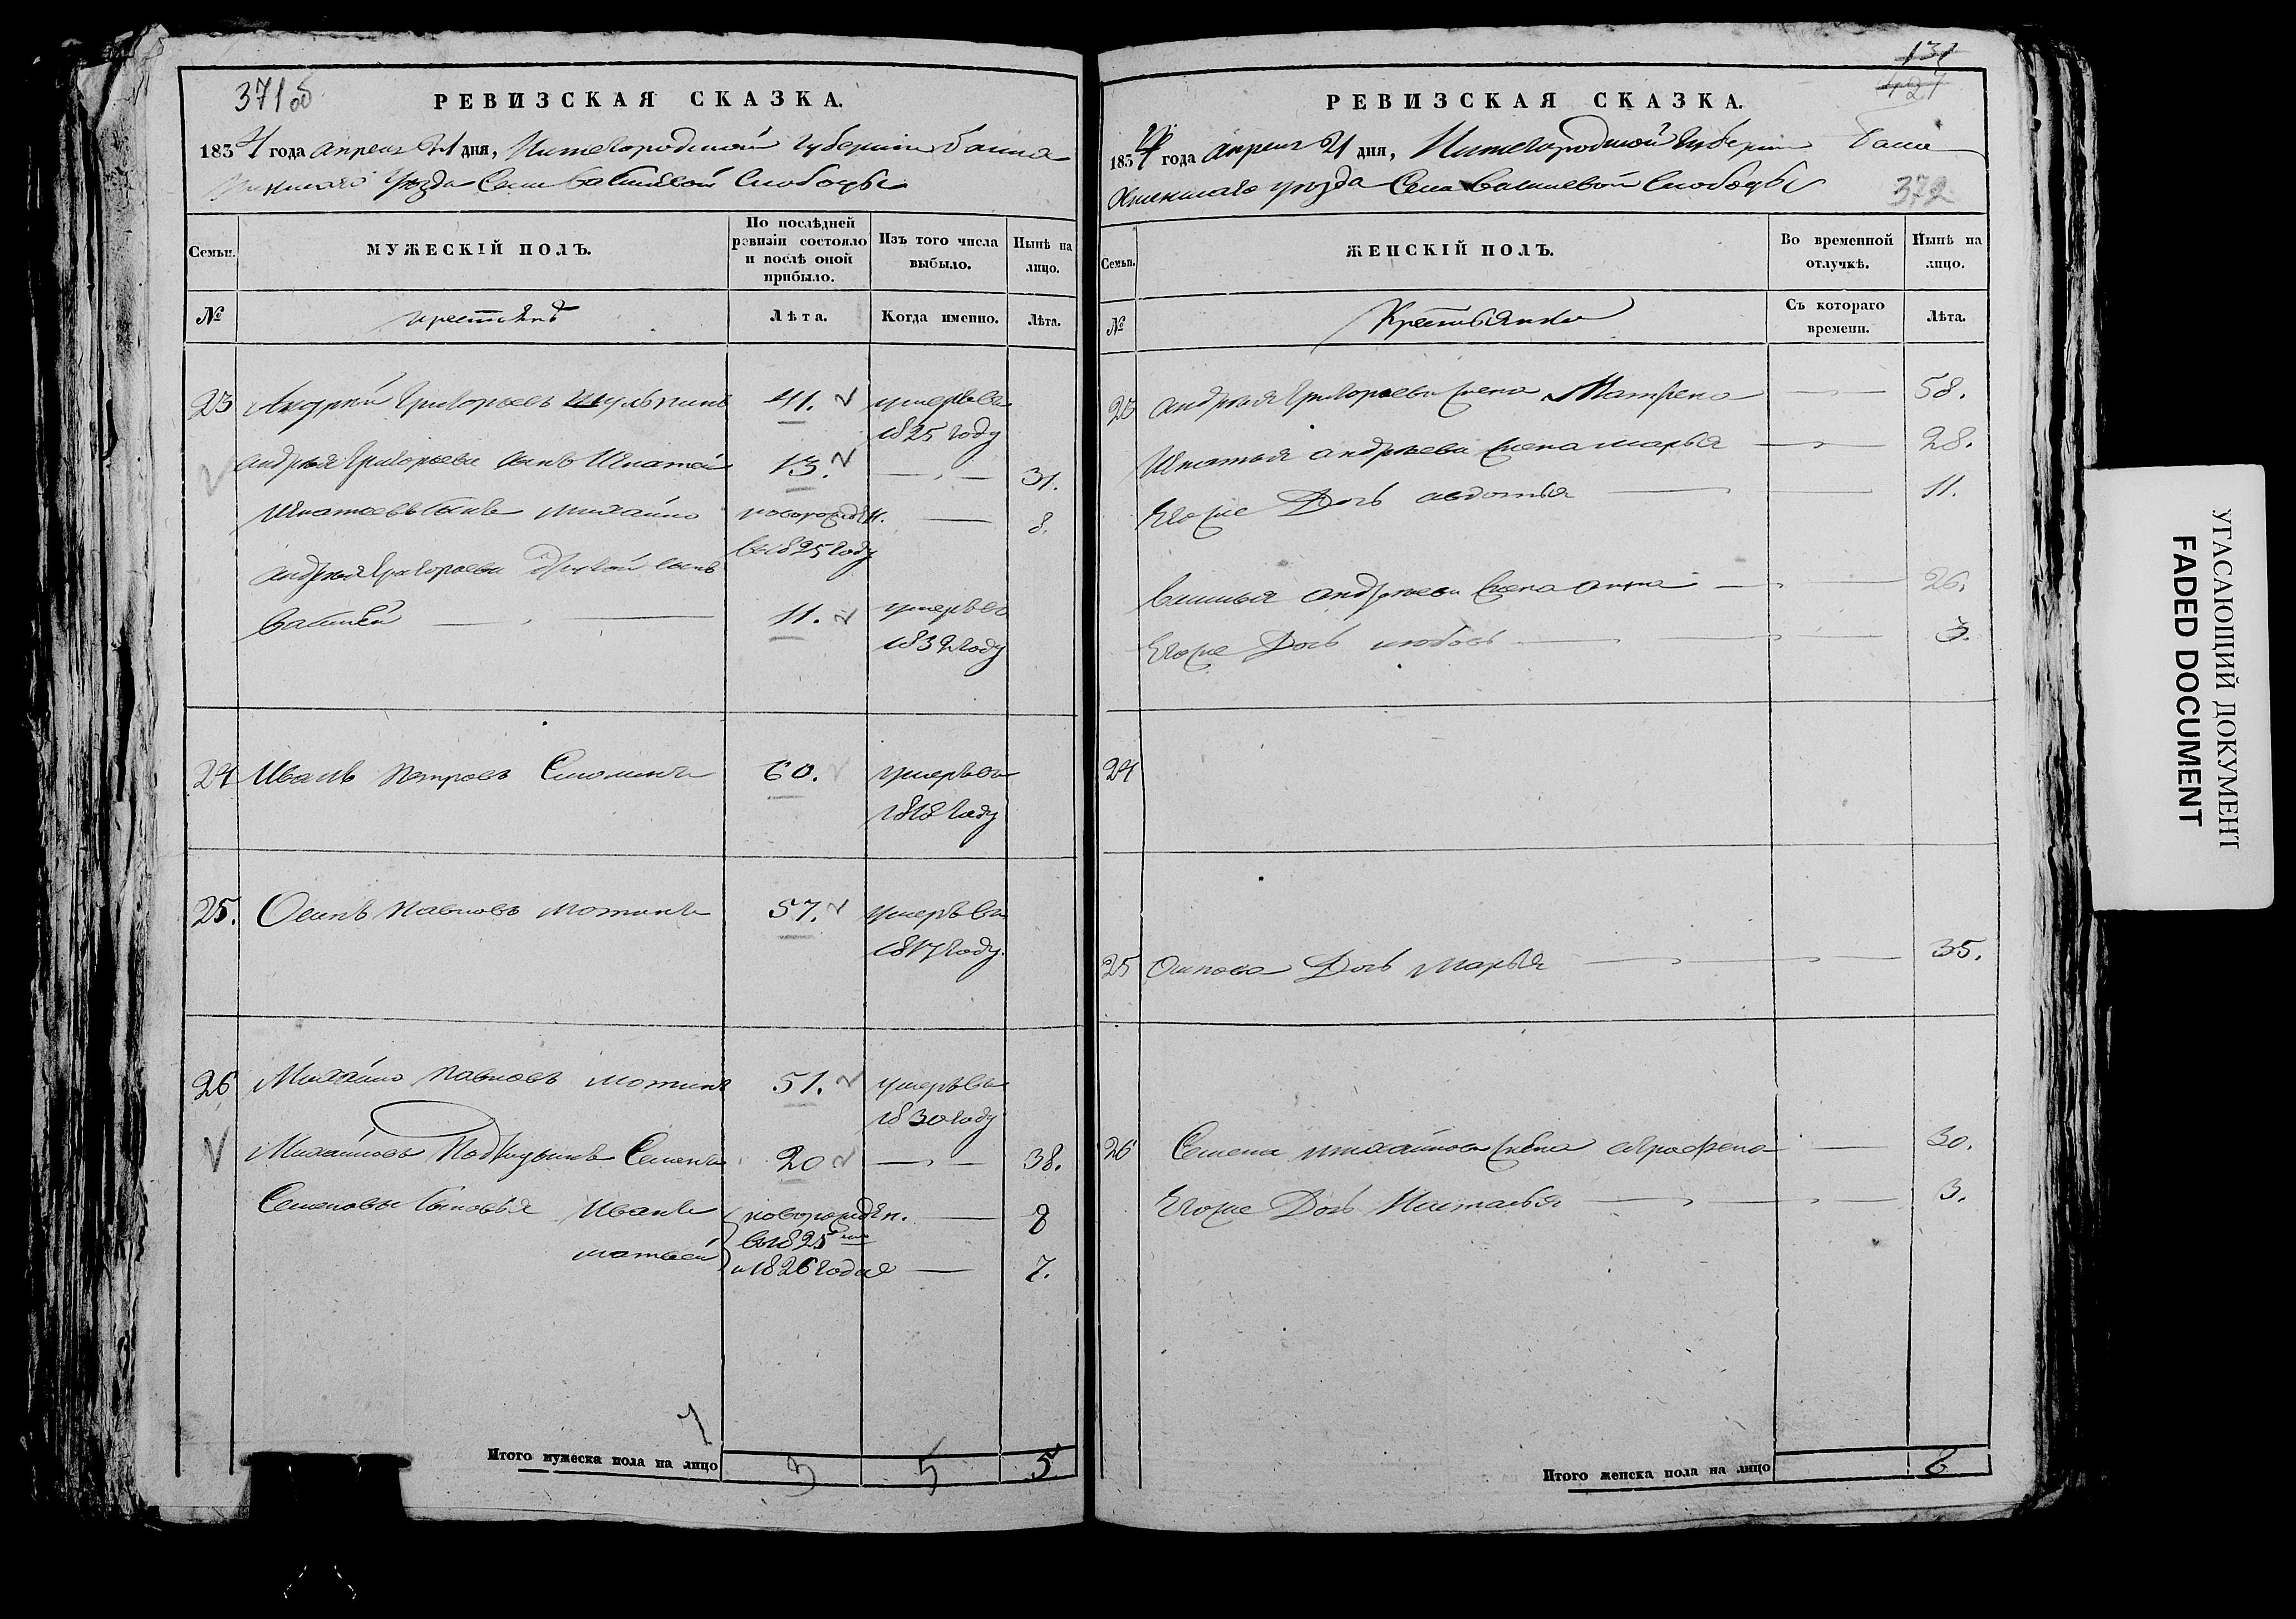 371об
РЕВИЗСКАЯ СКАЗКА.
1834 года апреля 21 дня, Нижегородской губернiи Бала
хнинскаго уѣзда Села Василевой Слободы
Семьи.
МУЖЕСКІЙ ПОЛЪ.
По послѣдней ревизіи состояло и послѣ оной прибыло.
Изъ того числа выбыло.
Нынѣ на лицо.
№
крестьянъ
Лѣта.
Когда именно.
Лѣта.
23 Андрей Григорьевъ 41. умеръ въ
1825 году
Андрея Григорьева сынъ Игнатей 13. 31.
Игнатьевъ сынъ Михайло новорожден. 8.
въ 1825 году
Андрея Григорьева другой сынъ
Василей 11. умеръ въ
1832 году
24 Иванъ Петровъ 60. умеръ въ
1818 году
25. Осипъ Павловъ Мотинъ 57. умеръ въ
1817 году.
26 Михайло Павловъ Мотинъ 51. умеръ въ
1830 году
Михайловъ Семенъ 20 38.
Семеновы сыновья Иванъ новорожден. 8
въ 1825
Матвей и 1826 годах 7.
Итого мужеска пола на лицо 5
131
372
РЕВИЗСКАЯ СКАЗКА.
1834 года апреля 21 дня, Нижегородской губернiи Бала
хнинскаго уѣзда Села Василевой Слободы
Семьи.
ЖЕНСКІЙ ПОЛЪ.
Во временной отлучкѣ.
Нынѣ на лицо.
№
Крестьянки
Съ котораго времени.
Лѣта.
23 Андрея Григорьева жена Матрена 58.
Игнатья Андреева жена Марья 28.
Егоже дочь Авдотья 11.
Василья Андреева жена Анна 26.
Егоже дочь Любовь 3.
24
25 Осипова дочь Марья 35.
26 Семена Михайлова жена Аграфена 30.
Егоже дочь Наталья 3.
Итого женска пола на лицо 8
УГАСАЮЩИЙ ДОКУМЕНТ
FADED DOCUMENT